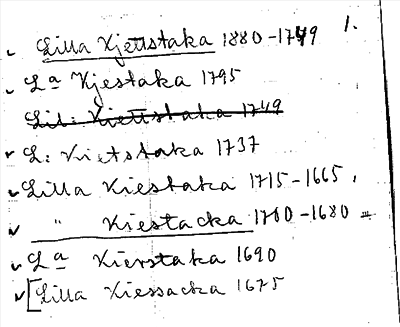 1.
Lilla Kjettstaka 1880-1749
La Kjestaka 1795
Lil: Kiettstaka 1749
L: Kietstaka 1737
Lilla Kiestaka 1715-1665.
" Kiestacka 1700-1680 =
La Kierstaka 1690
[Lilla Kiessacka 1675